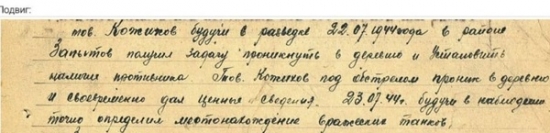 Подвиг:
тов. Кожихов будучи в разведке 22.07.1944 года в районе
Запытов получил задачу проникнуть в деревню и установить
наличие противника. Тов. Кожихов под обстрелом проник в деревню
и своевременно дал ценные сведения. 23.07.44г. будучи в наблюдении
точно определил местонахождение вражеских танков.